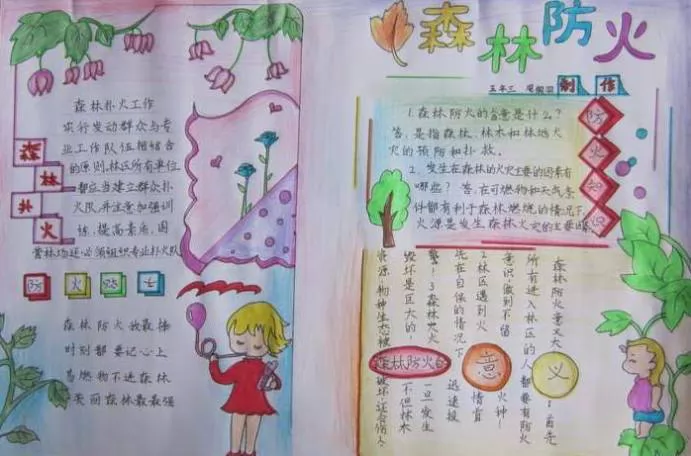 森林防火
五年三
制作
森林扑火工作
实行发动群众与专
业工作队伍相结合
的原则,林区所有单位
都应当建立群众扑
火队,并注意加强训
练,提高素质,国
营林场还必须组织专业扑火队
森林扑火
防火防
森林防火我最棒
时刻都要记心上
易燃物不进森林
美丽森林最最强
1.森林防火的含意是什么?
答:是指森林、林木和林地火
灾的预防和扑救。
2、发生在森林的火灾主要的因素有
哪些?答:在可燃物和天气条
件都有利于森林燃烧的情况下,
火源是发生森林火灾的主要因
防火知识
森林防火意义大:首先
所有进入林区的人都要有防火
意识,做到不留火种!
2林区遇到火情育
先在自保的情况下迅速报
警!3森林火灾一旦发生
毁坏是巨大的,不但林木
资源、物种生态被破坏,还会伤人!
森林防火的
意义